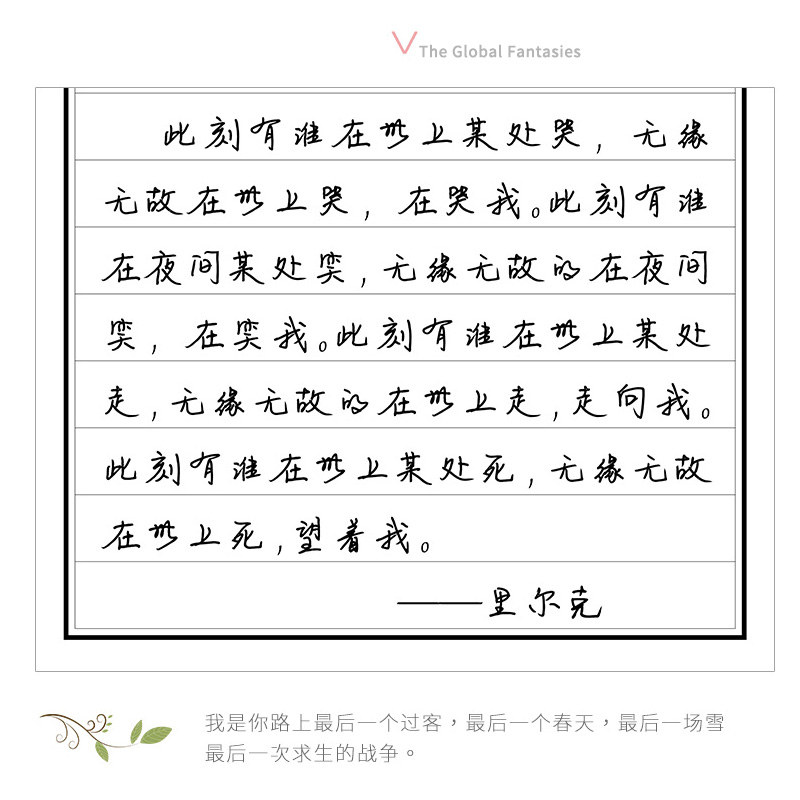 The Global Fantasies
此刻有谁在世上某处哭，无缘
无故在世上哭，在哭我。此刻有谁
在夜间某处笑，无缘无故的在夜间
笑，在笑我。此刻有谁在世上某处
走，无缘无故的在世上走，走向我。
此刻有谁在世上某处死，无缘无故
在世上死，望着我。
——里尔克
我是你路上最后一个过客，最后一个春天，最后一场雪
最后一次求生的战争。